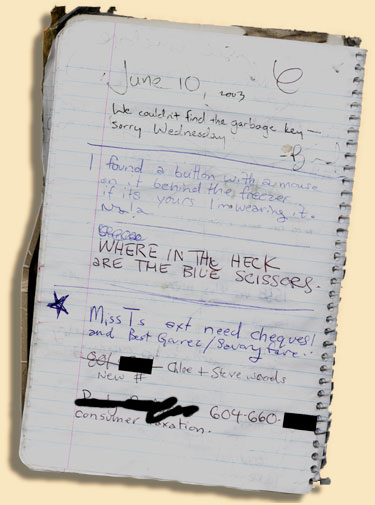 June 10, 2003
We couldn't find the garbage key —
sorry Wednesday
I found a button with a mouse
on it behind the freezer
if it's yours I'm wearing it.
Nala
WHERE IN THE HECK
ARE THE BLUE SCISSORS.
Miss T's ext need cheques!
and Best Game/
Chloe + Steve Woods
New #
604-660-
consumer taxation.